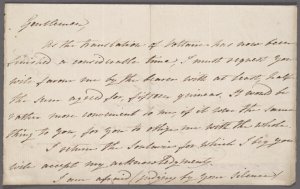 Gentlemen,
As the translation of Voltaire has now been
finished a considerable time, I must request you
will favour me by the bearer with at least, half
the sum agreed for, fifteen guineas. It would be
rather more convenient to me, if it were the same
thing to you, for you to oblige me with the whole.
I return the for which I beg you
will accept my acknowledgment.
I am afraid (judging by your silence)